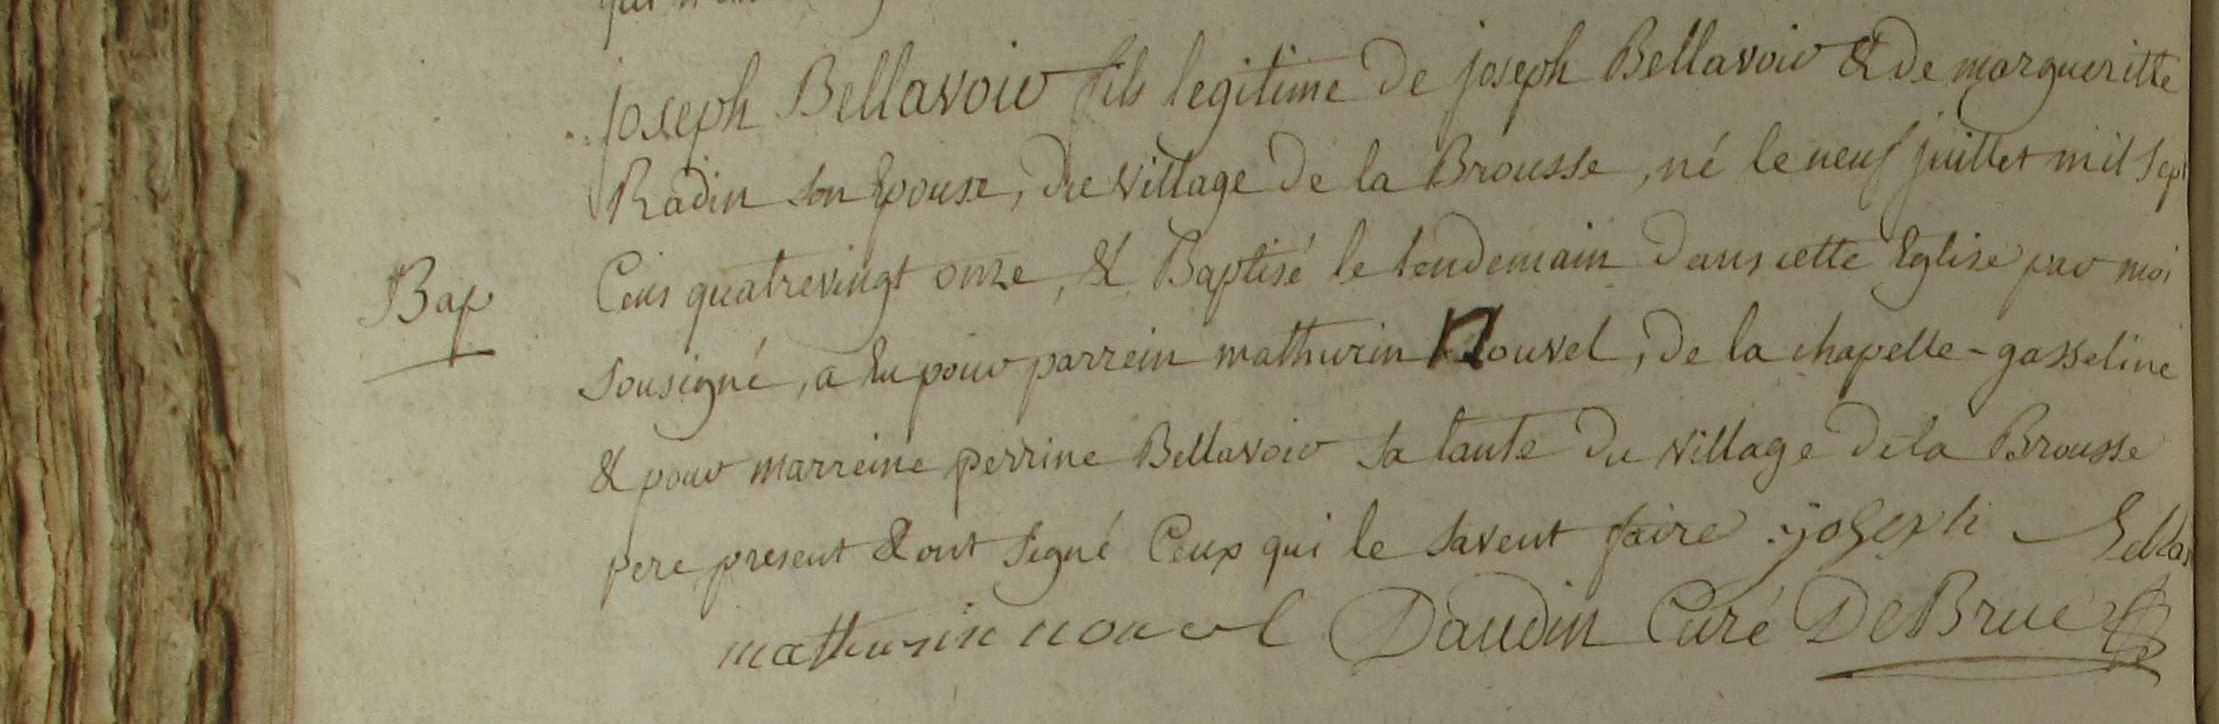 joseph Bellavoir fils legitime de joseph Bellavoir & de margueritte
Radin son Epouse, du village de la Brousse, né le neuf juillet mil sept
Cens quatrevingt onze, & Baptisé le lendemain dans cette Eglise par moi
Bap
sousigné, a Eu pour parrein mathurin Nouvel, de la chapelle-gasseline
& pour marreine perrine Bellavoir sa tante du village de la Brousse
pere present & ont signé Ceux qui le savent faire. joseph Bella
mathurin nouvel Daudin Curé De Brue